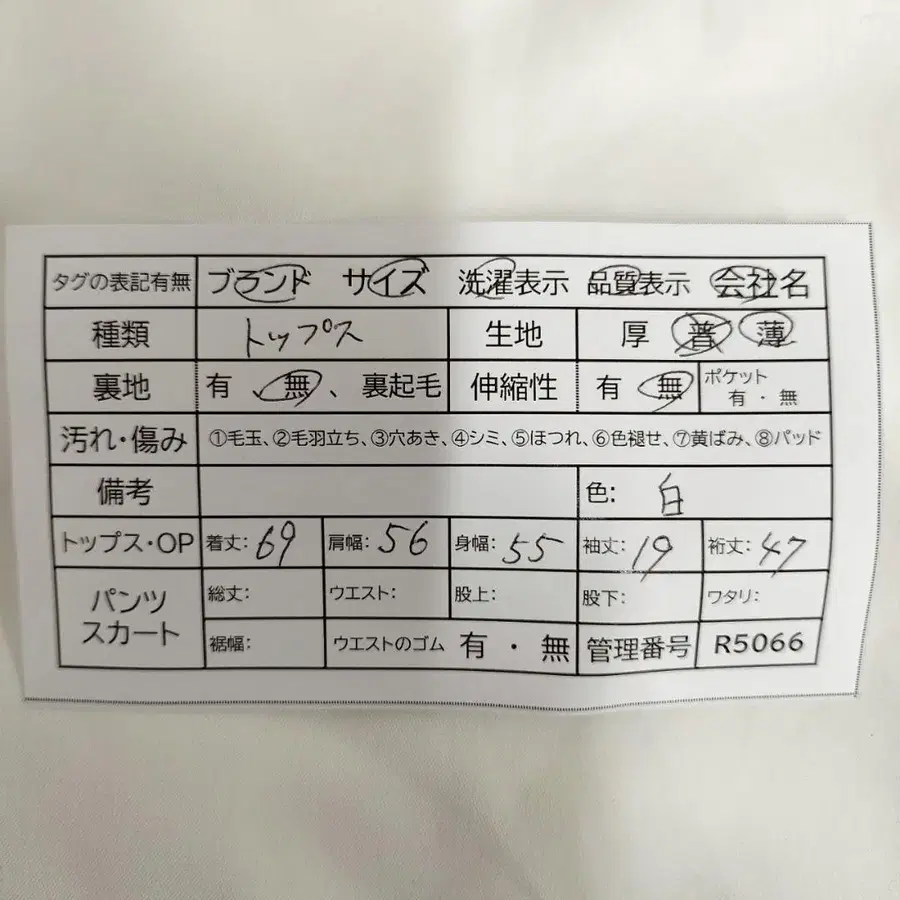 タグの表記有無 ブランド サイズ 洗濯表示 品質表示 会社名
種類 トップス 生地 厚 普 薄
裏地 有 、無 、裏起毛 伸縮性 有 無 ポケット 有・無
汚れ・傷み ①毛玉、②毛羽立ち、③穴あき、④シミ、⑤ほつれ、⑥色褪せ、⑦黄ばみ、⑧パッド
備考 色: 白
トップス・OP 着丈: 69 肩幅: 56 身幅: 55 袖丈: 19 裄丈: 47
パンツ スカート 総丈: ウエスト: 股上: 股下: ワタリ:
裾幅: ウエストのゴム 有・無 管理番号 R5066